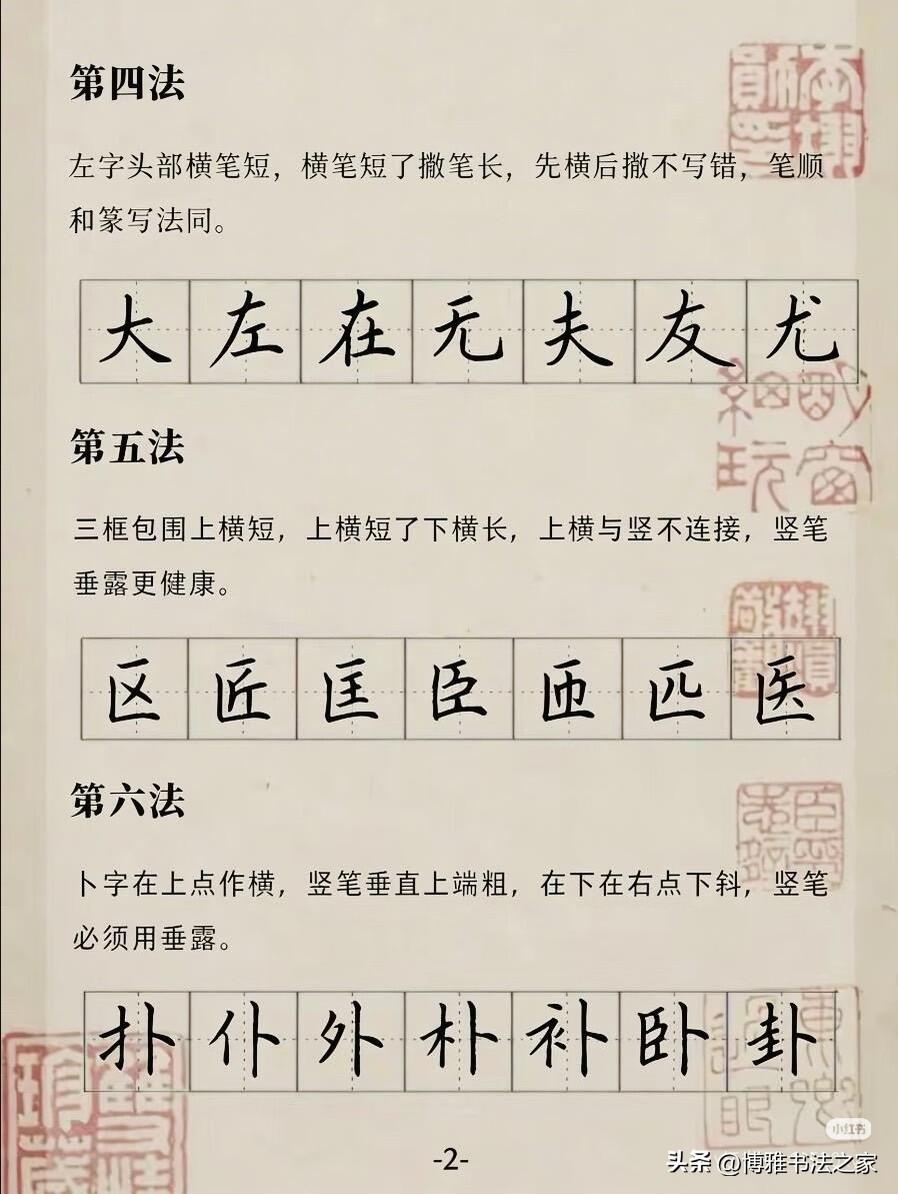 第四法
左字头部横笔短，横笔短了撇笔长，先横后撇不写错，笔顺
和篆写法同。
大左在无夫友尤
第五法
三框包围上横短，上横短了下横长，上横与竖不连接，竖笔
垂露更健康。
区匠匡臣匝匹医
第六法
卜字在上点作横，竖笔垂直上端粗，在下在右点下斜，竖笔
必须用垂露。
扑仆外朴补卧卦
小红书
-2-
头条 @博雅书法之家